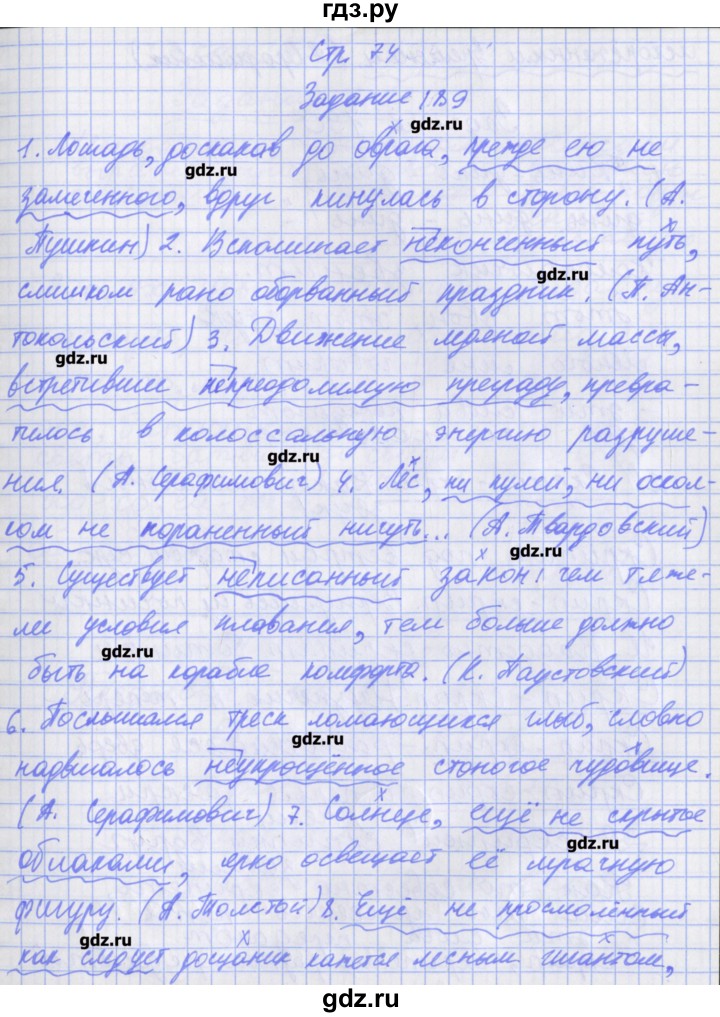 гдз.ру
Стр. 74
Задание 189
gdz.ru
1. Лошадь, доскакав до оврага, прежде ею не
gdz.ru
замеченного, вдруг кинулась в сторону. (А.
Пушкин) 2. Вспоминает неконченный путь,
gdz.ru
слишком рано оборванный праздник. (П. Ан-
токольский) 3. Движение ледяной массы,
gdz.ru
встретивши непреодолимую преграду, превра-
тилось в колоссальную энергию разруше-
gdz.ru
ния. (А. Серафимович) 4. Лес, ни пулей, ни оскол-
ком не пораненный ничуть... (А. Твардовский)
gdz.ru
5. Существует неписанный закон: чем тяже-
ли условия плавания, тем больше должно
gdz.ru
быть на корабле комфорта. (К. Паустовский)
6. Послышался треск ломающихся глыб, словно
gdz.ru
надвигалось неукрощённое стоногое чудовище.
(А. Серафимович) 7. Солнце, ещё не скрытое
gdz.ru
облаками, ярко освещает её мрачную
фигуру. (А. Толстой) 8. Ещё не просмолённый
gdz.ru
как следует дощаник кажется лесным гигантом,
gdz.ru